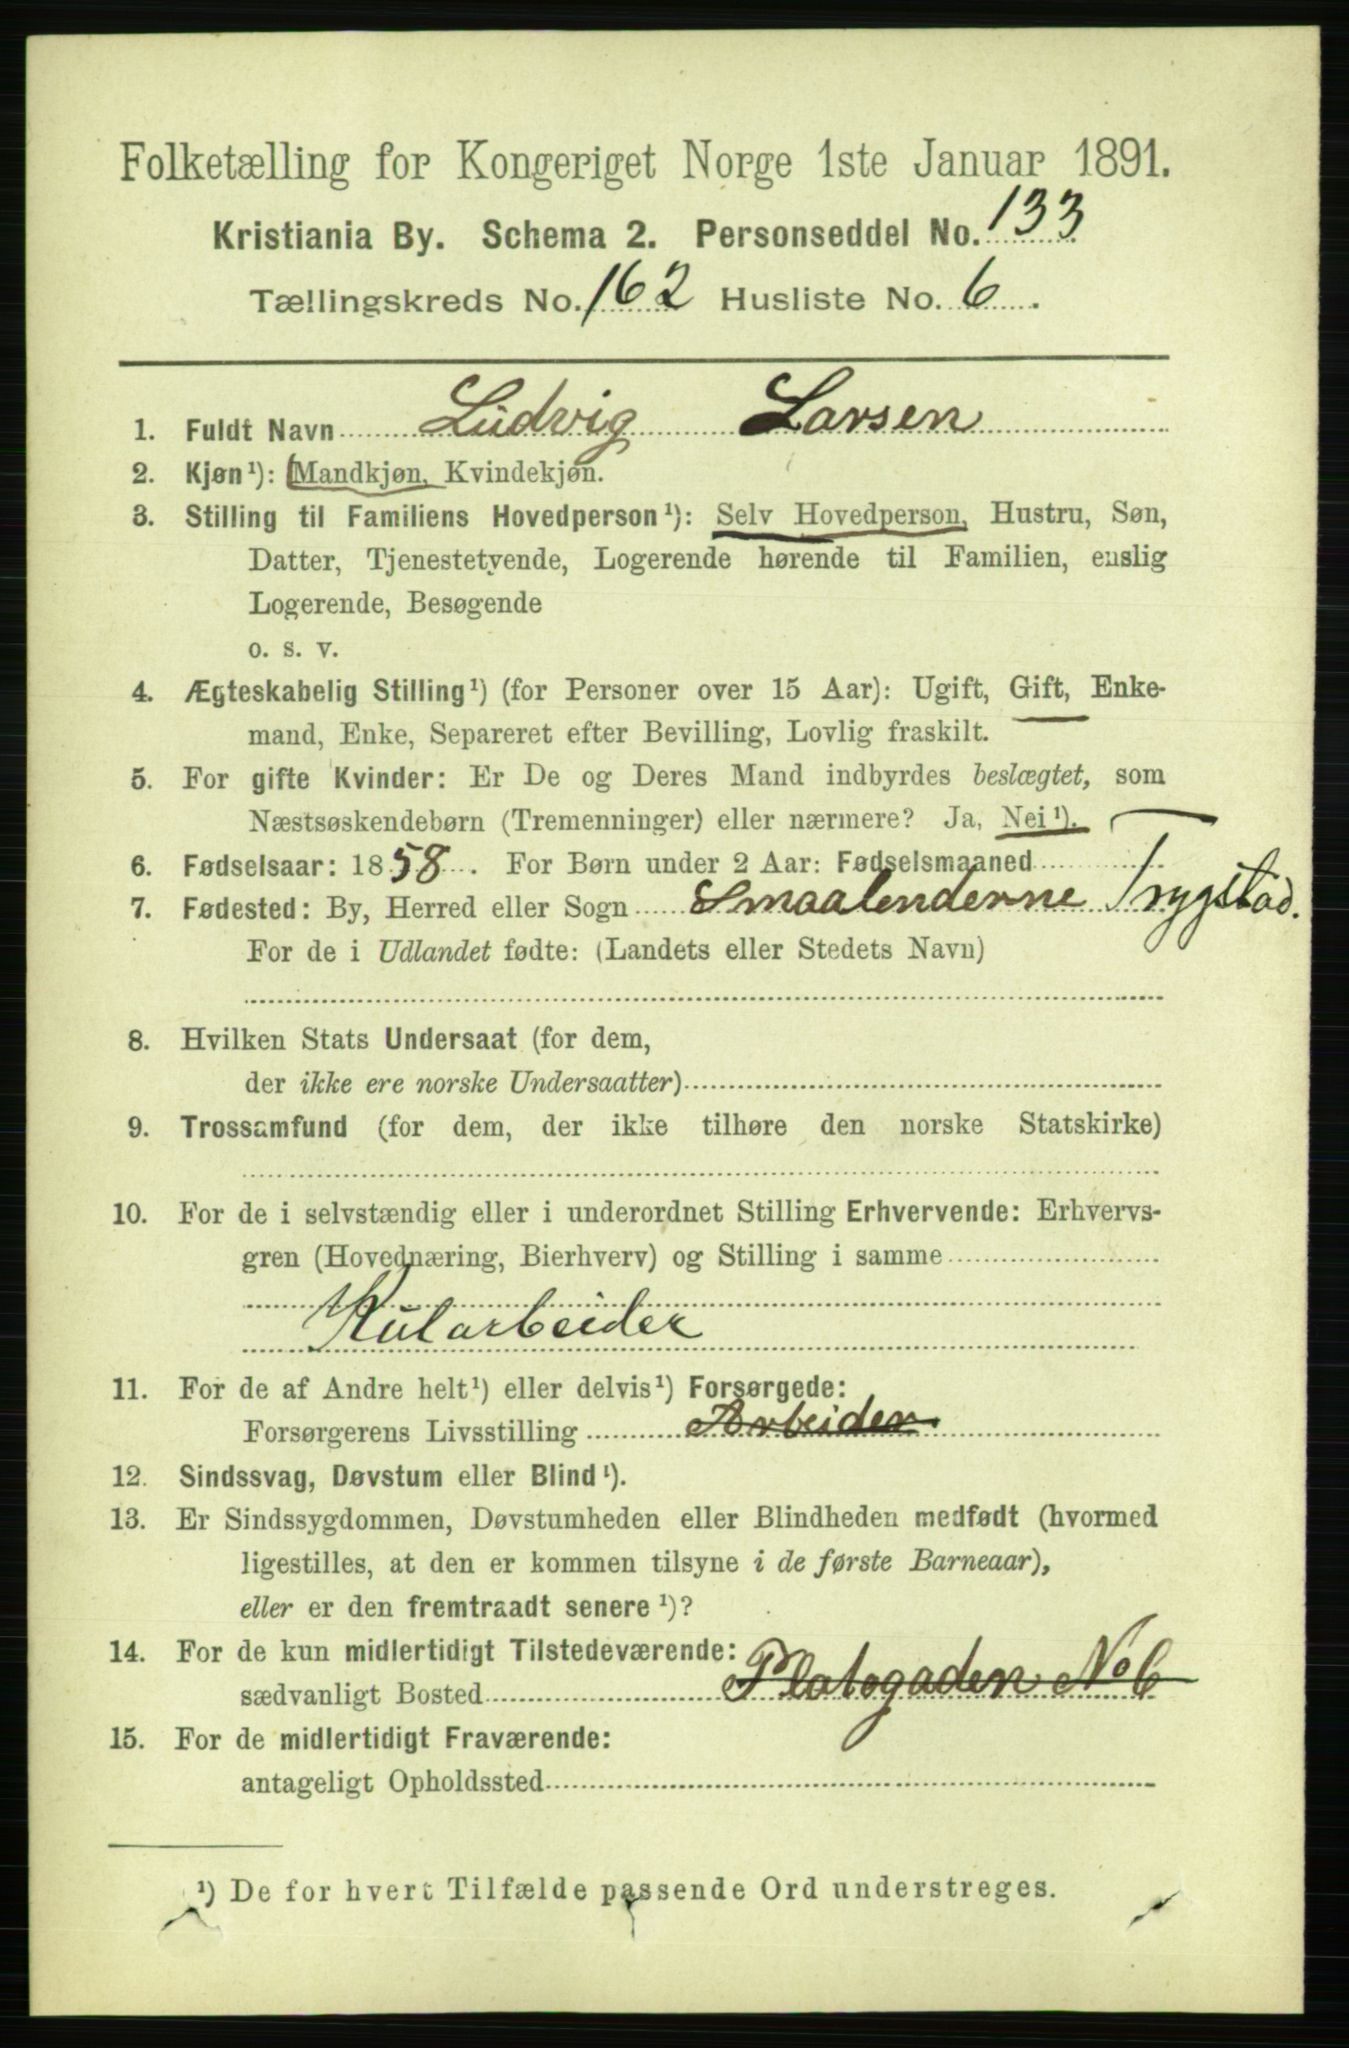 Folketælling for Kongeriget Norge 1ste Januar 1891.
Kristiania By. Schema 2. Personseddel No. 133
Tællingskreds No. 162 Husliste No. 6.
1. Fuldt Navn Ludvig Larsen
2. Kjøn¹): Mandkjøn, Kvindekjøn.
3. Stilling til Familiens Hovedperson¹): Selv Hovedperson, Hustru, Søn,
Datter, Tjenestetyende, Logerende hørende til Familien, enslig
Logerende, Besøgende
o. s. v.
4. Ægteskabelig Stilling¹) (for Personer over 15 Aar): Ugift, Gift, Enke-
mand, Enke, Separeret efter Bevilling, Lovlig fraskilt.
5. For gifte Kvinder: Er De og Deres Mand indbyrdes beslægtet, som
Næstsøskendebørn (Tremenninger) eller nærmere? Ja, Nei¹).
6. Fødselsaar: 1858. For Børn under 2 Aar: Fødselsmaaned
7. Fødested: By, Herred eller Sogn Smaalenderne Trygstad.
For de i Udlandet fødte: (Landets eller Stedets Navn)
8. Hvilken Stats Undersaat (for dem,
der ikke ere norske Undersaatter)
9. Trossamfund (for dem, der ikke tilhøre den norske Statskirke)
10. For de i selvstændig eller i underordnet Stilling Erhvervende: Erhvervs-
gren (Hovednæring, Bierhverv) og Stilling i samme
Kularbeider
11. For de af Andre helt¹) eller delvis¹) Forsørgede:
Forsørgerens Livsstilling Arbeider
12. Sindssvag, Døvstum eller Blind¹).
13. Er Sindssygdommen, Døvstumheden eller Blindheden medfødt (hvormed
ligestilles, at den er kommen tilsyne i de første Barneaar),
eller er den fremtraadt senere¹)?
14. For de kun midlertidigt Tilstedeværende:
sædvanligt Bosted Platogaden No 6
15. For de midlertidigt Fraværende:
antageligt Opholdssted
¹) De for hvert Tilfælde passende Ord understreges.